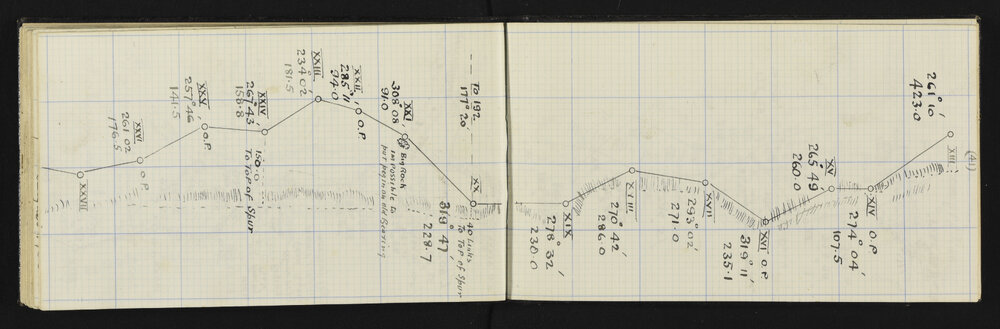 (41)
XIII
261° 10'
423.0
XIV O.P
274° 04'
107.5
XV
265° 49'
260.0
XVI O.P
319° 11'
235.1
XVII
293° 02'
271.0
XVIII
270° 42'
286.0
XIX
278° 32'
230.0
To 192
177° 20'
XX
40 Links
To Top of Spur
319° 47'
228.7
XXI
308° 08'
91.0
Big Rock
impossible to
put peg in on old Bearing
XXII O.P.
285° 11'
94.0
XXIII
234° 02'
181.5
XXIV
267° 43'
158.8
150.0
To Top of Spur
XXV O.P.
257° 46'
141.5
XXVI O.P
261° 02'
176.5
XXVII